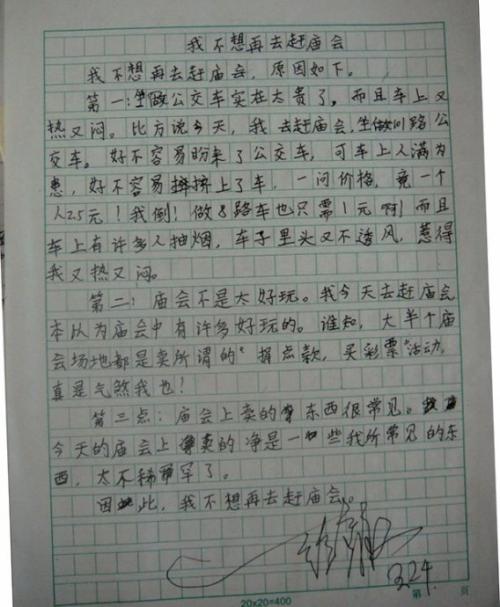 我不想再去赶庙会
我不想再去赶庙会，原因如下。
第一：坐做公交车实在太贵了。而且车上又
热又闷。比方说今天，我去赶庙会，坐做川路公
交车。好不容易盼来了公交车，可车上人满为
患，好不容易挤上了车，一问价格，竟一个
人2.5元！我倒！做8路车也只需1元啊！而且
车上有许多人抽烟，车子里头又不透风，惹得
我又热又闷。
第二：庙会不是太好玩。我今天去赶庙会
本以为庙会中有许多好玩的。谁知，大半个庙
会场地都是卖所谓的“捐点款，买彩票”活动，
真是气煞我也！
第三点：庙会上卖的东西很常见。
今天的庙会上卖的净是一些我所常见的东
西，太不稀罕了。
因此，我不想再去赶庙会。
3.24.
第 页
20x20=400